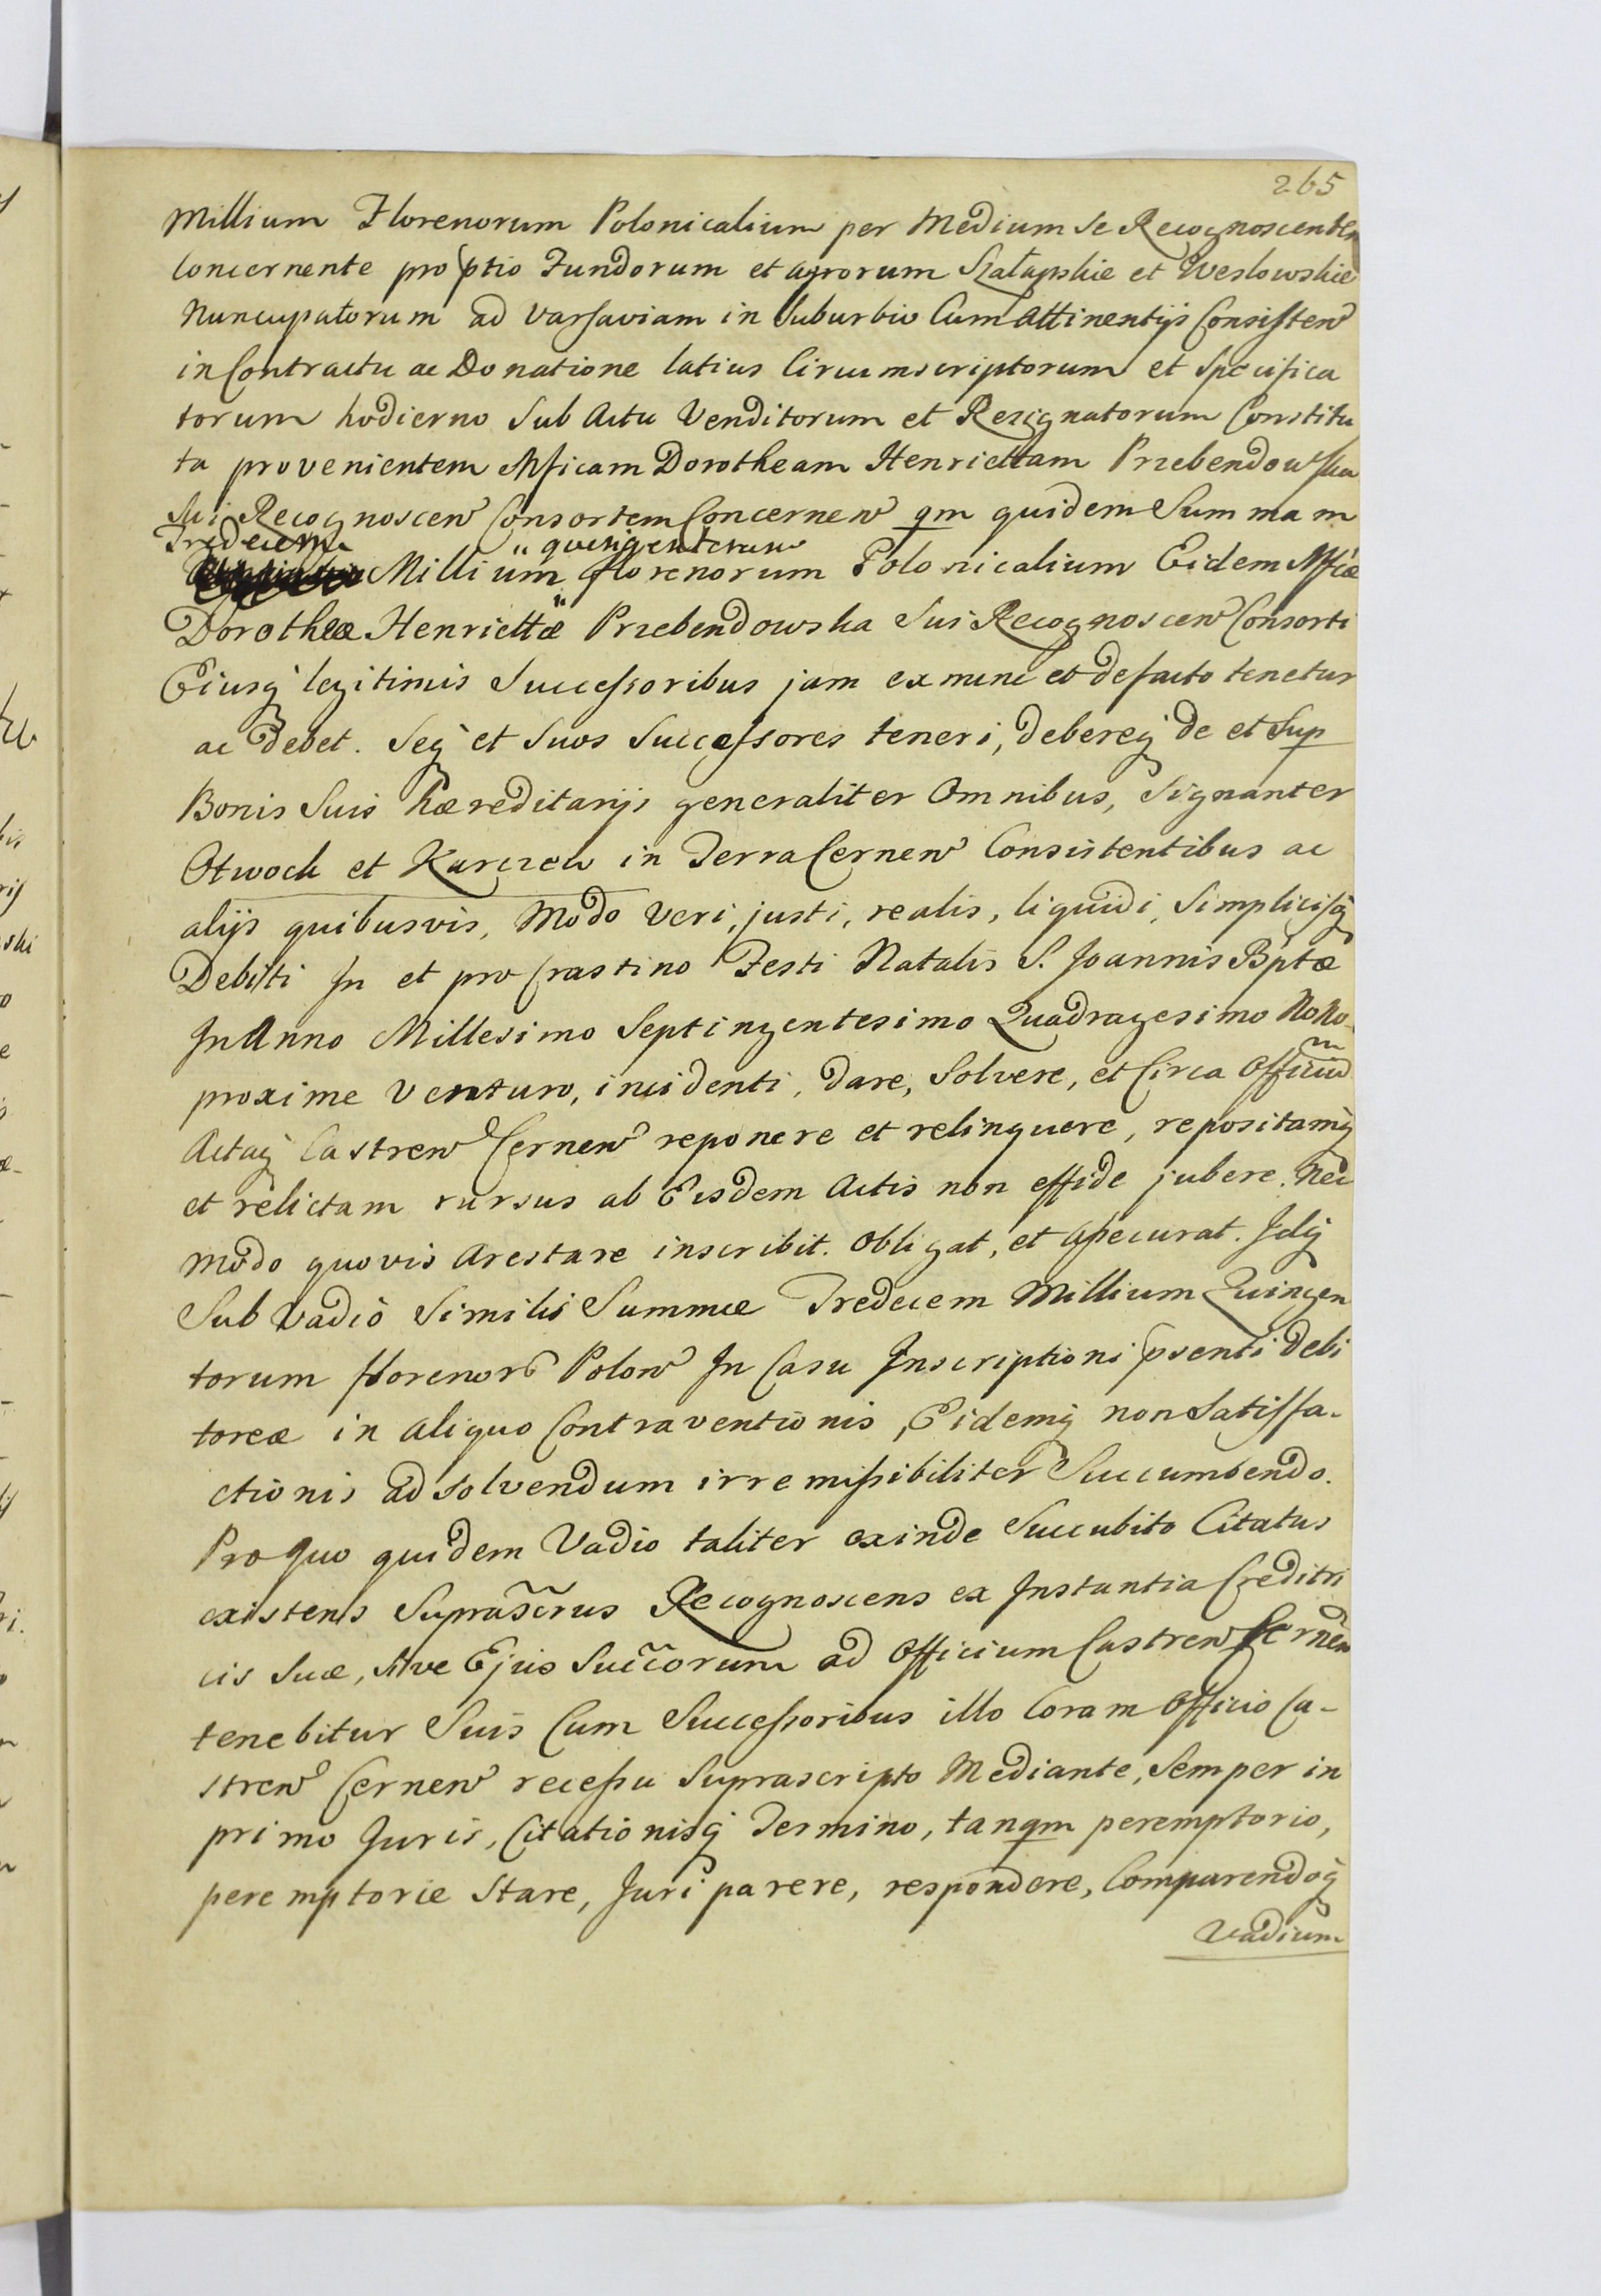 265
Millium Florenorum Polonicalium per Medium se Recognoscentem
Concernente pro ptio Fundorum et agrorum Szałapskie et Weslowskie
Nuncupatorum ad Varsaviam in Suburbio Cum Attinentijs Consisten
in Contractu ac Donatione latius Circumscriptorum et Specifica
torum hodierno Sub Actu Venditorum et Rezignatorum Constitu
ta provenientem Mficam Dorotheam Henriettam Przebendowska
Sui Recognoscen Consortem Concernen qm quidem Summam
Tredecem " quingentorum
Millium florenorum Polonicalium Eidem Mficæ
Dorotheæ Henriettæ Przebendowska Sui Recognoscen Consorti
Eiusq legitimis Successoribus jam ex nunc et defacto tenetur
ac debet. Seq et Suos Successores teneri, debereq de et Sup
Bonis Suis hæreditarijs generaliter Omnibus, Signanter
Otwock et Karczew in Terra Cernen Consistentibus ac
alijs quibusvis, Modo Veri, justi, realis, liquidi, Simplicisq
Debiti In et pro Crastino Festi Natalis S. Joannis Bptæ
In Anno Millesimo Septingentesimo Quadragesimo Nono
proxime Venturo, incidenti, dare, Solvere, et Circa Officiũ
Actaq Castren Cernen reponere et relinquere, repositamq
et relictam rursus ab Eisdem Actis non effide jubere. Nec
modo quovis Arestare inscribit. Obligat, et Assecurat. Idq
Sub Vadio Similis Summæ Tredecem Millium Quingen
torum florenor Polon In Casu Inscriptioni psenti debi
toreæ in aliquo Contraventionis, Eidemq non Satisfa-
ctionis ad solvendum irremissibiliter Succumbendo.
Pro quo quidem Vadio taliter exinde Succubito Citatus
existens Suprascrus Recognoscens ex Instantia Creditri
cis Suæ, Sive Ejus Succorum ad Officium Castren Cernen
tenebitur Suis Cum Successoribus illo Coram Officio Ca-
stren Cernen recessu Suprascripto Mediante, Semper in
primo Juris, Citationisq Termino, tanqm peremptorio,
peremptorie Stare, Juri parere, respondere, Comparendoq
Vadium